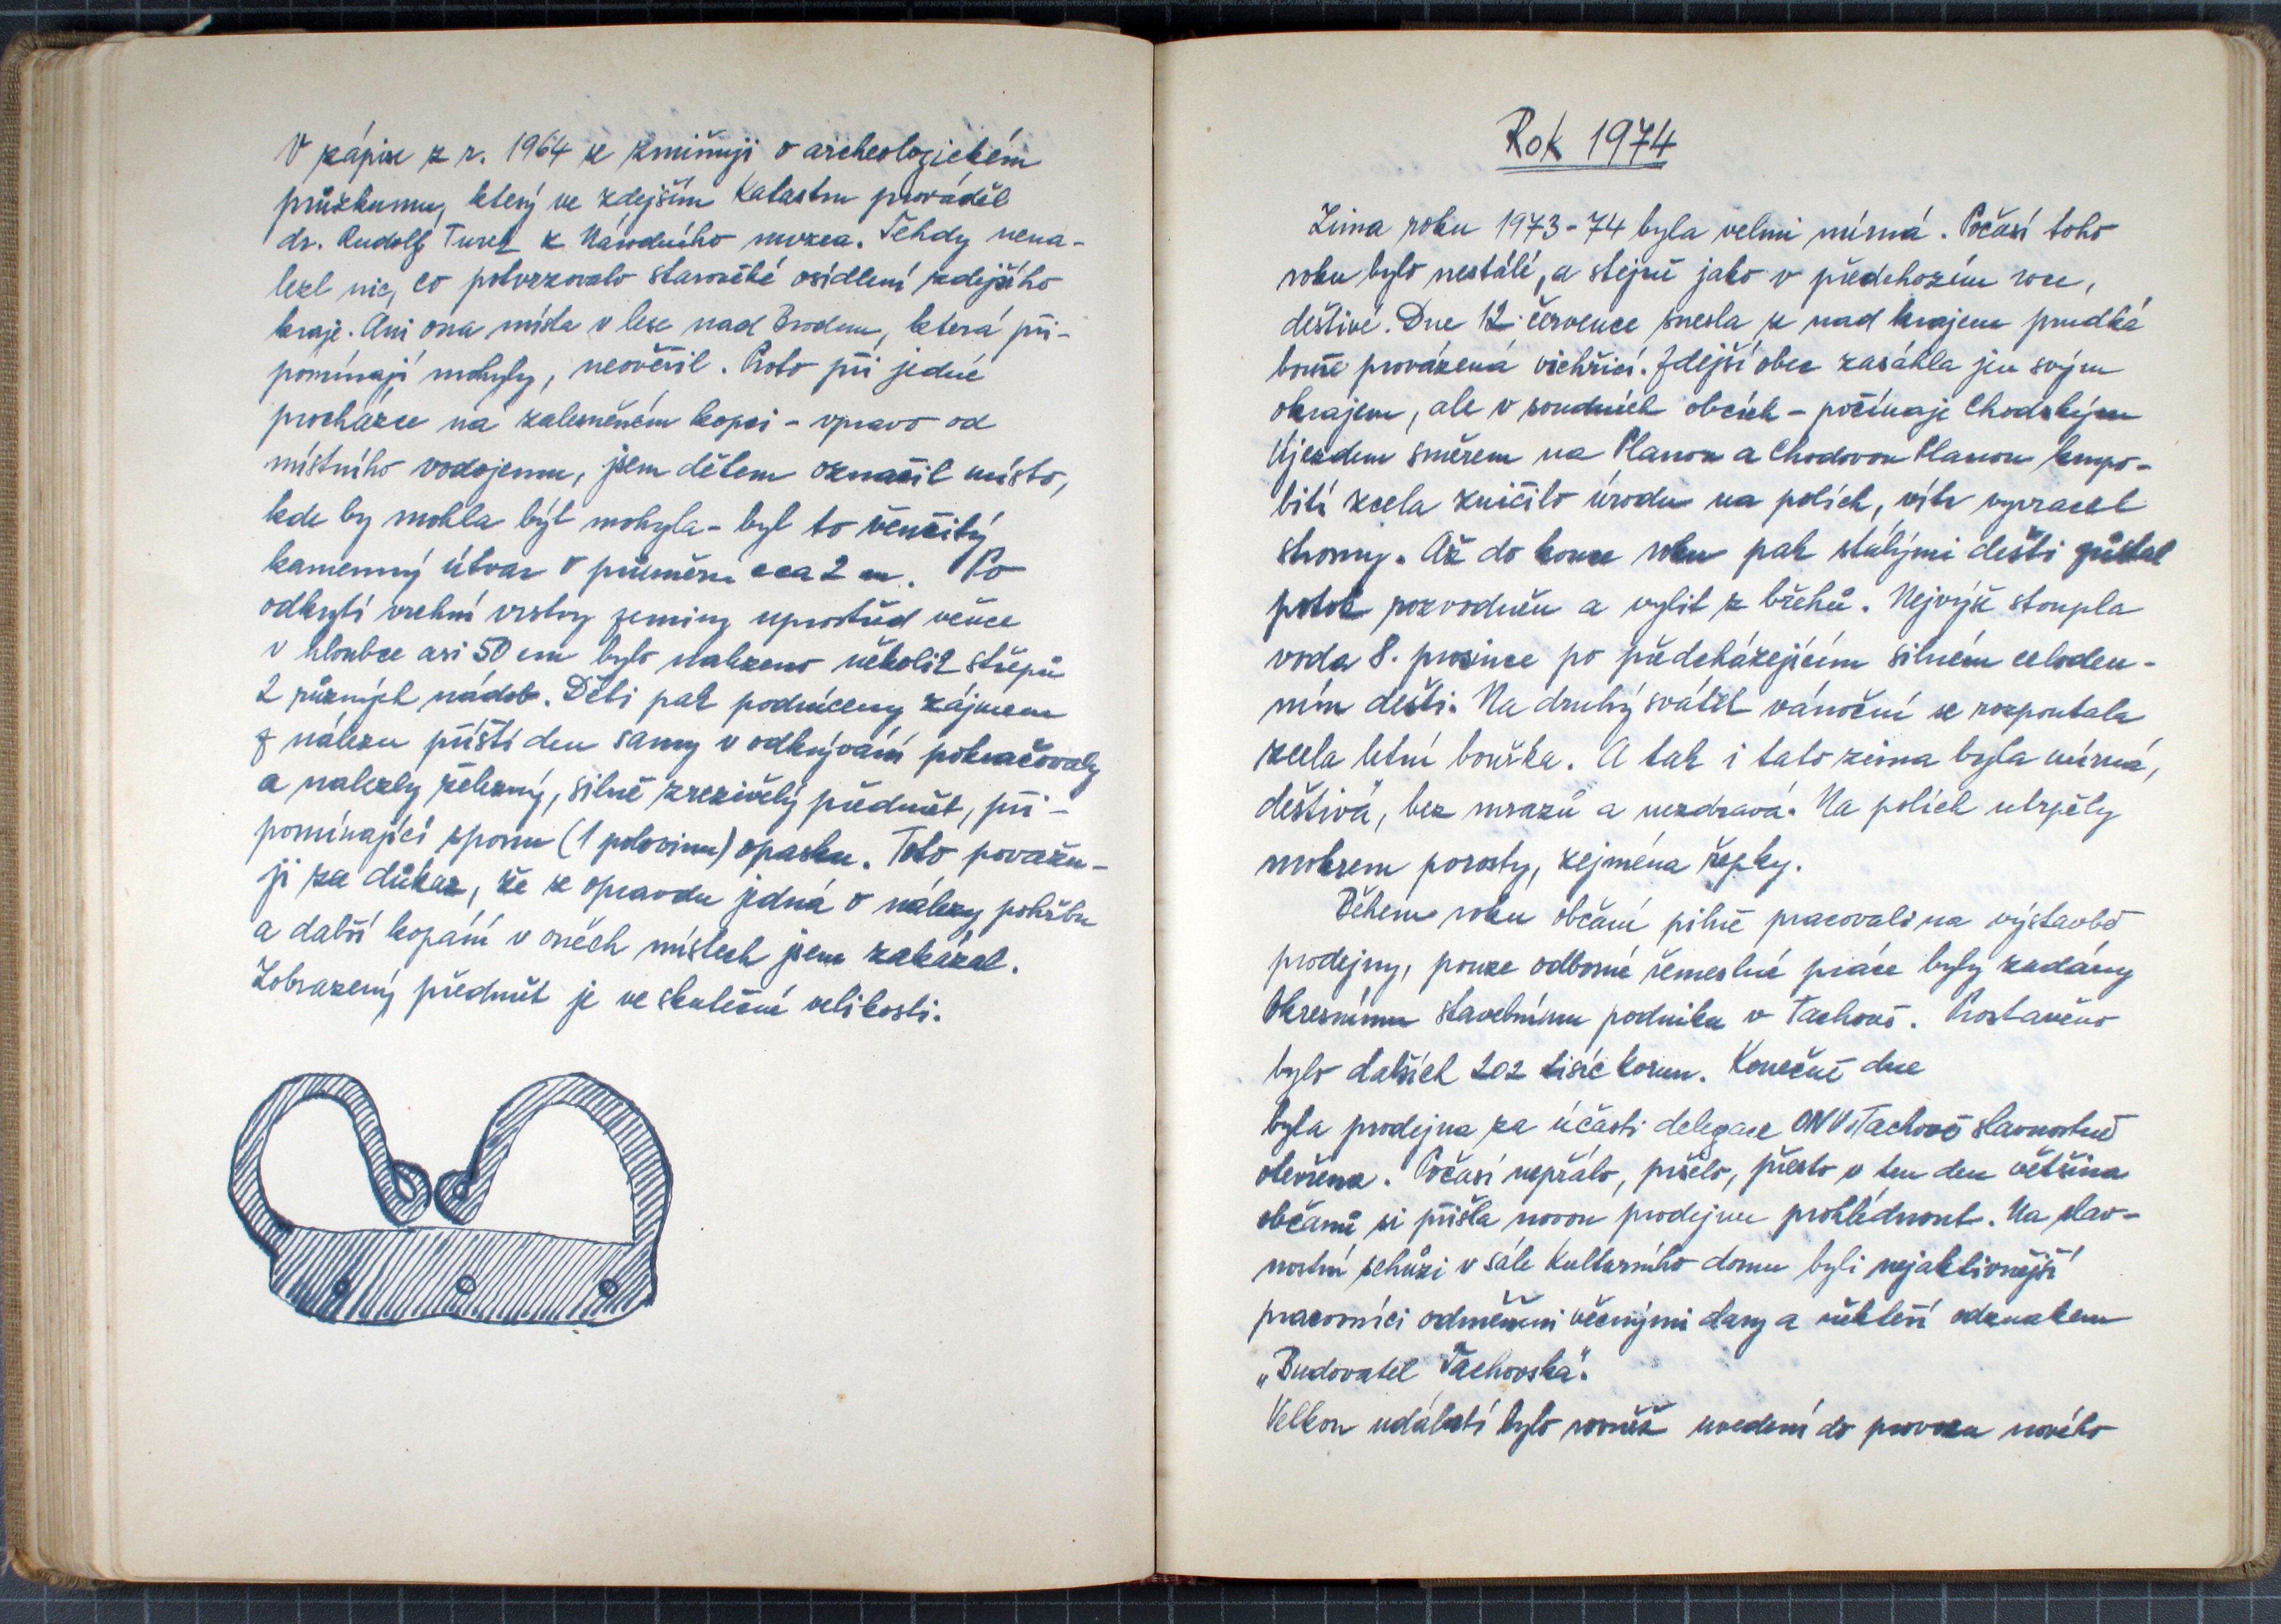 V zápise z r. 1964 se zmiňuji o archeologickém
průzkumu, který ve zdejším katastru prováděl
dr. Rudolf Turek z Národního muzea. Tehdy nena-
lezl nic, co potvrzovalo starověké osídlení zdejšího
kraje. Ani ona místa v lese nad Brodem, která při-
pomínají mohyly, neověřil. Proto při jedné
procházce na zalesněném kopci - vpravo od
místního vodojemu, jsem dětem označil místo,
kde by mohla být mohyla - byl to věncitý
kamenný útvar o průměru cca 2 m. Po
odkrytí vrchní vrstvy zeminy uprostřed věnce
v hloubce asi 50 cm bylo nalezeno několik střepů
2 různých nádob. Děti pak podníceny zájmem
z nálezu příští den samy v odkrývání pokračovaly
a nalezly železný, silně zrezivělý předmět, při-
pomínající sponu (1 polovinu) opasku. Toto považu-
ji za důkaz, že se opravdu jedná o nálezy pohřbu
a další kopání v oněch místech jsem zakázal.
Zobrazený předmět je ve skutečné velikosti.
Rok 1974
Zima roku 1973-74 byla velmi mírná. Počasí toho
roku bylo nestálé, a stejně jako v předchozím roce,
deštivé. Dne 12. července snesla se nad krajem prudká
bouře provázená vichřicí. Zdejší obec zasáhla jen svým
okrajem, ale v soudních obcích - počínaje Chodským
Újezdem směrem na Planou a Chodovou Planou krupo-
bití zcela zničilo úrodu na polích, vítr vyvracel
stromy. Až do konce roku pak stálými dešti zůstal
potok rozvodněn a vylit z břehů. Nejvýše stoupla
voda 8. prosince po předcházejícím silném celoden-
ním dešti. Na druhý svátek vánoční se rozpoutala
zcela letní bouřka. A tak i tato zima byla mírná,
deštivá, bez mrazů a nezdravá. Na polích utrpěly
mokrem porosty, zejména řepky.
Během roku občané pilně pracovali na výstavbě
prodejny, pouze odborné řemeslné práce byly zadány
Okresnímu stavebnímu podniku v Tachově. Prostavěno
bylo dalších 202 tisíc korun. Konečně dne
byla prodejna za účasti delegace ONV v Tachově slavnostně
otevřena. Počasí nepřálo, pršelo, přesto v ten den většina
občanů si přišla novou prodejnu prohlédnout. Na slav-
nostní schůzi v sále Kulturního domu byli nejaktivnější
pracovníci odměněni věcnými dary a někteří odznakem
„Budovatel Tachovska".
Velkou událostí bylo rovněž uvedení do provozu nového